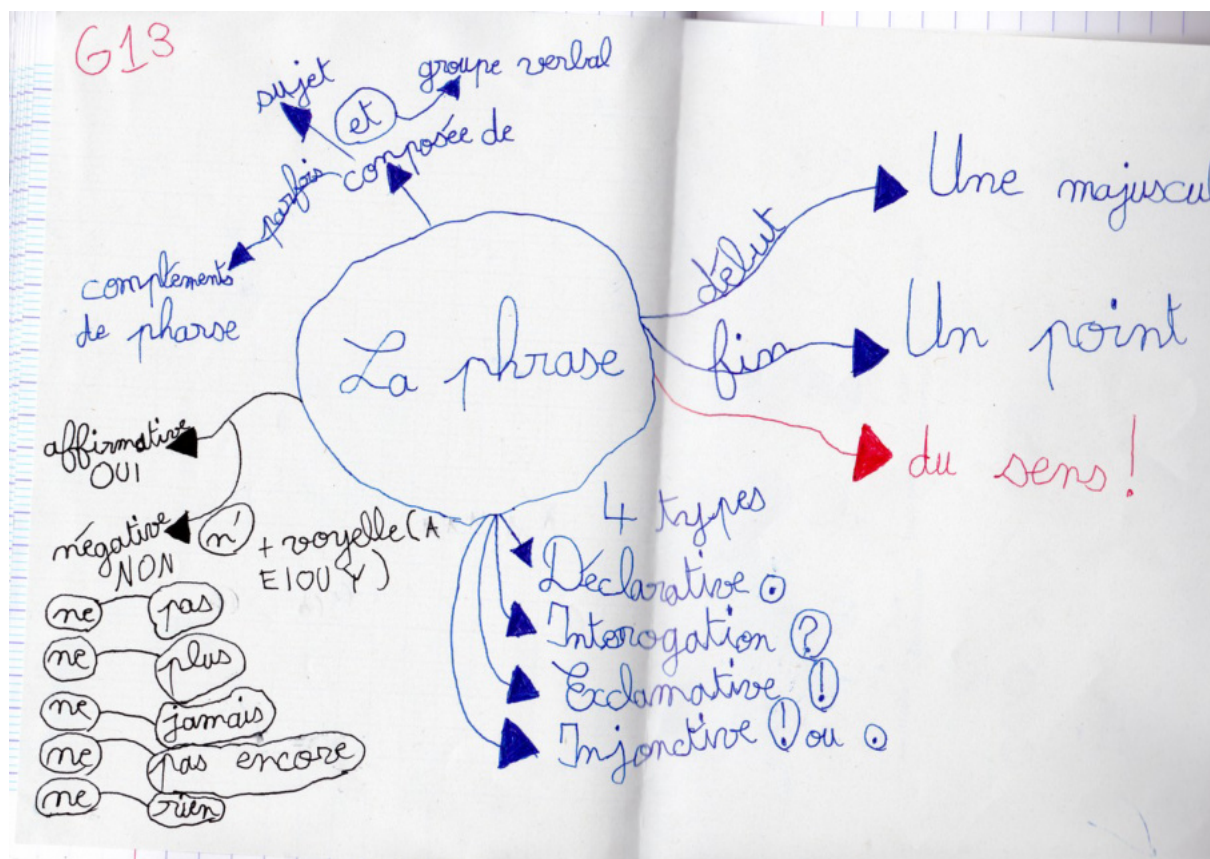 G13
sujet
et
groupe verbal
composée de
parfois
compléments
de pharse
La phrase
début
Une majuscul
fin
Un point
du sens !
affirmative
OUI
négative
NON
n' + voyelle (A
E I O U Y)
ne pas
ne plus
ne jamais
ne pas encore
ne rien
4 types
Déclarative .
Interogation ?
Exclamative !
Injonctive ! ou .